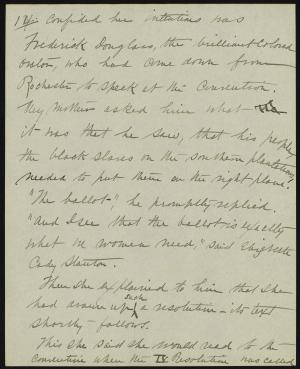 confided her intentions was
Frederick Douglass, the brilliant Colored
orator, who had come down from
Rochester to speak at the Convention.
My mother asked him what
it was that he saw, that his people,
the black slaves on the southern plantations,
needed to put them on the right plane.
"The ballot", he promptly replied.
"And I see that the ballot is exactly
what we women need," said Elizabeth
Cady Stanton.
Then she explained to him that she
had drawn up such a resolution - its text
shortly follows.
This she said she would read to the
convention when the IX Resolution was called